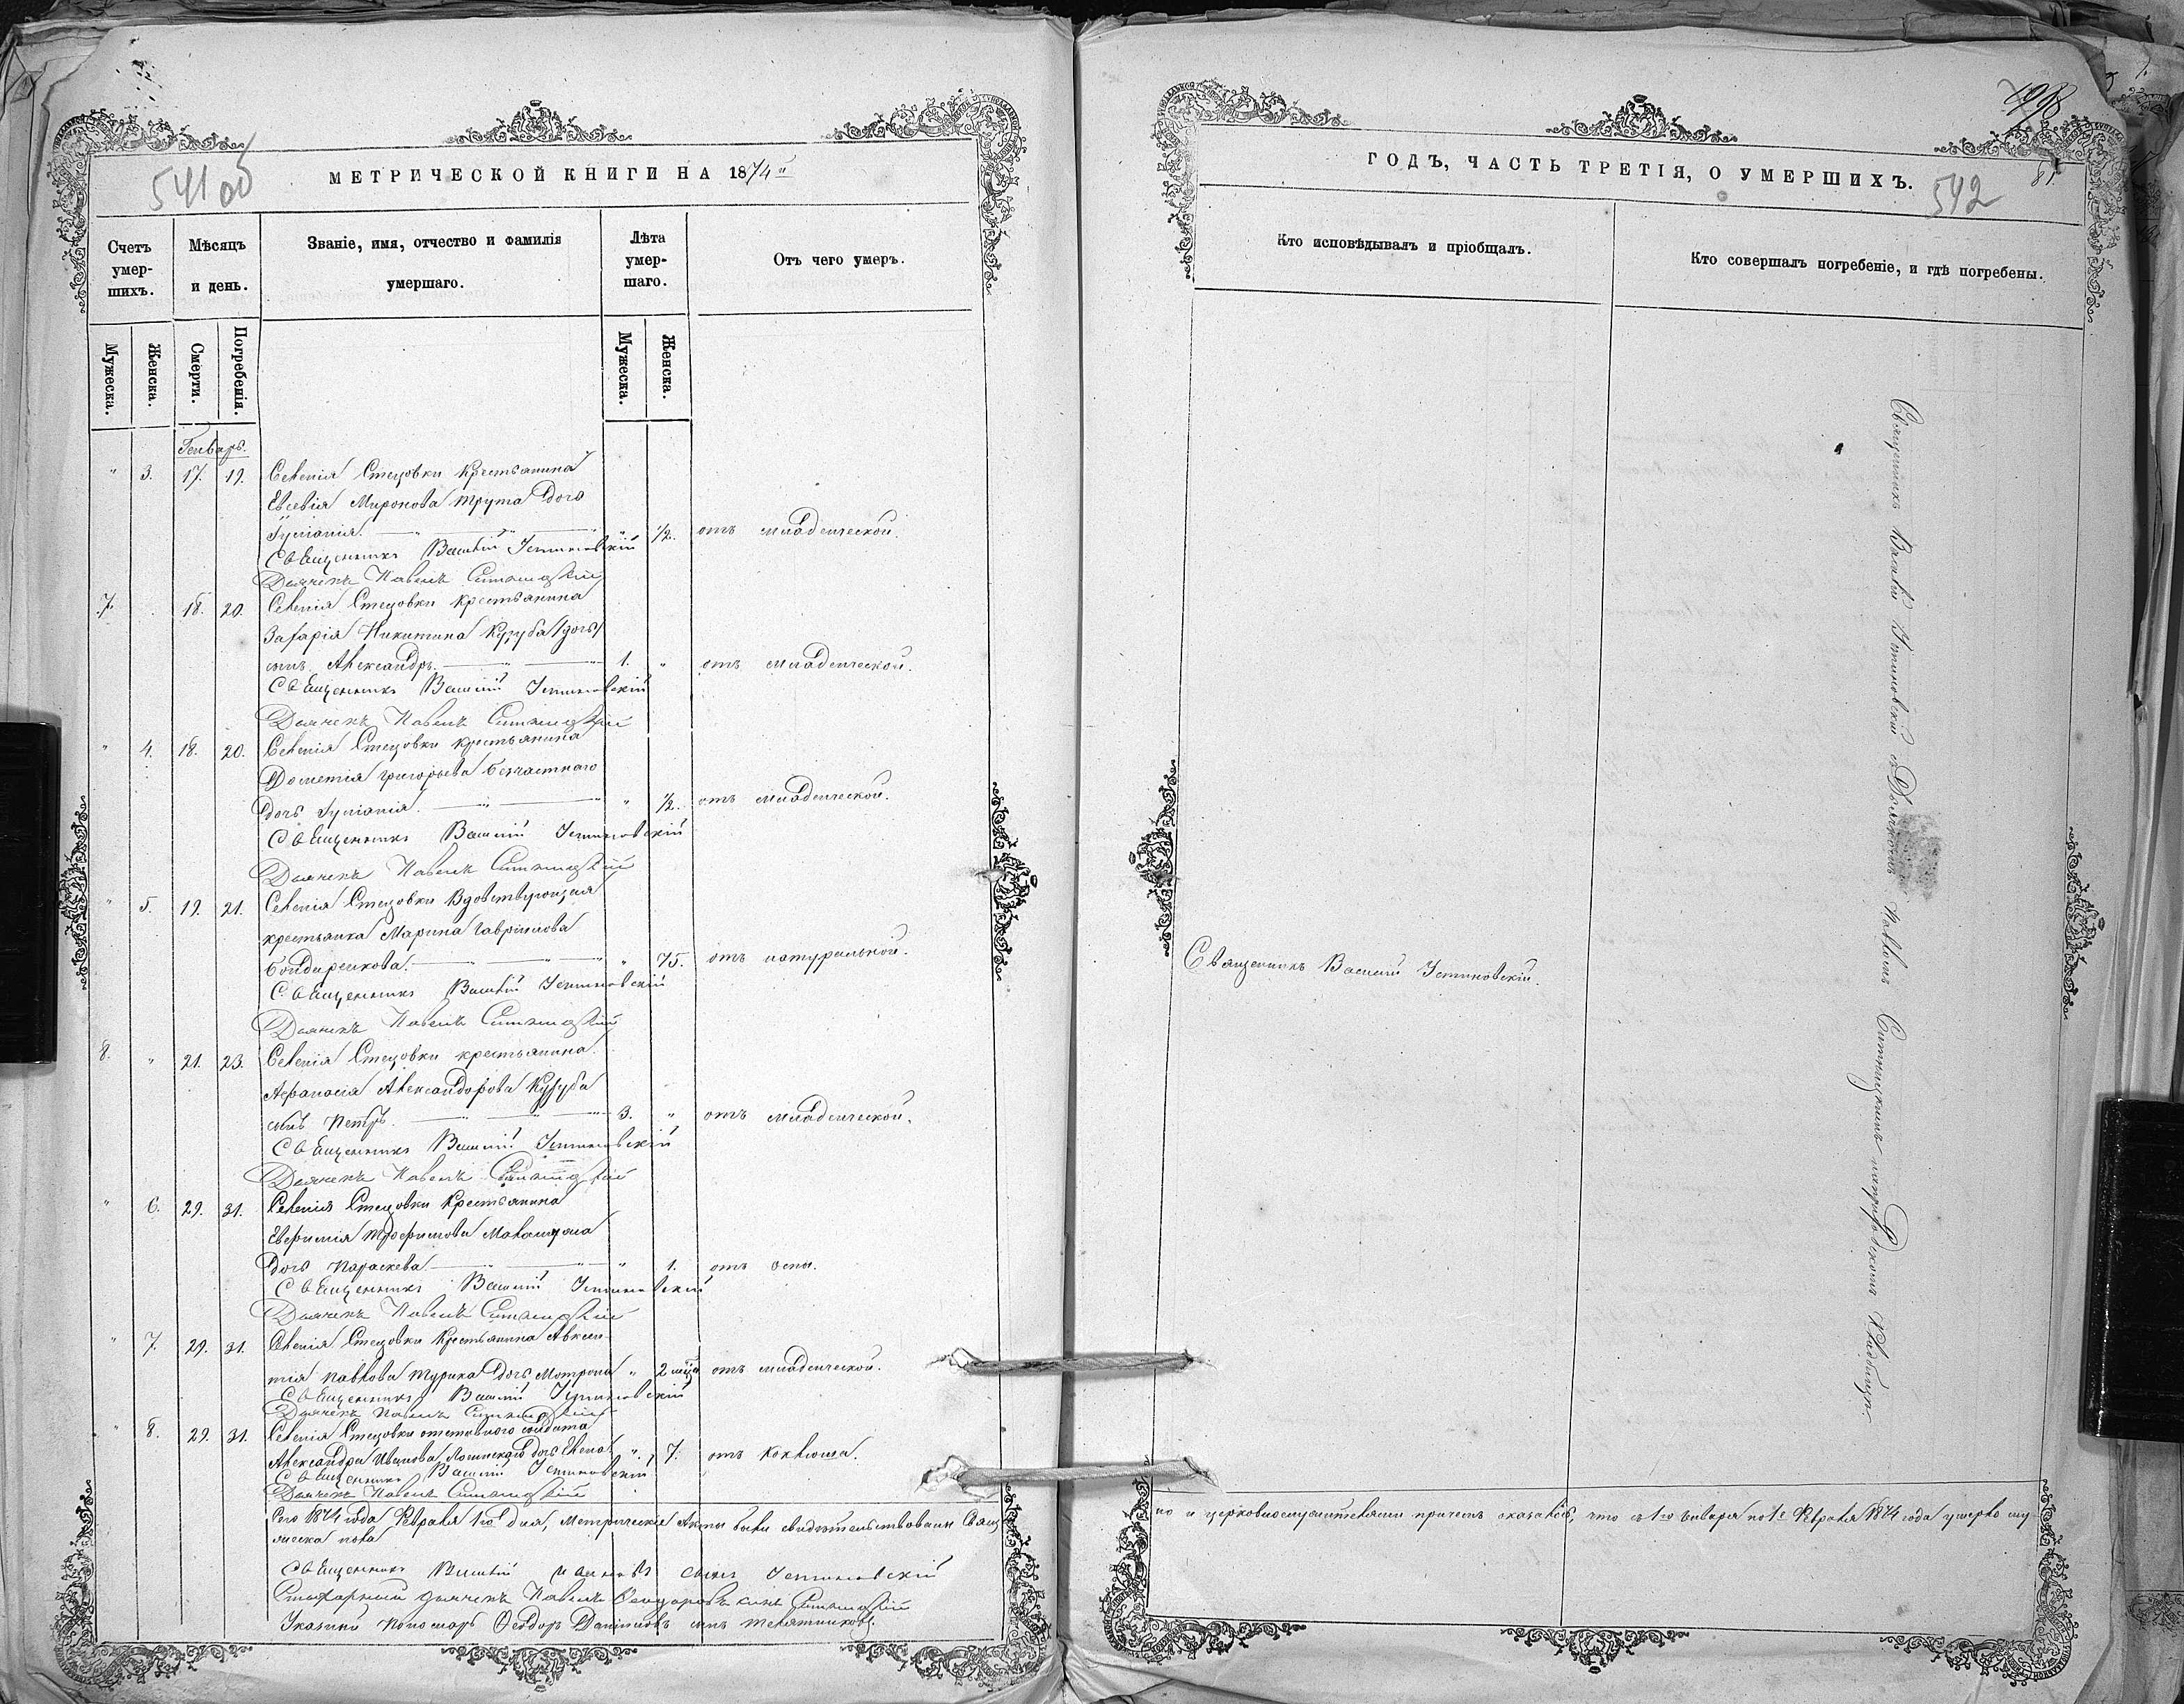 541 об
МЕТРИЧЕСКОЙ КНИГИ НА 1874й
Счетъ умер-шихъ.
Мѣсяцъ и день.
Званіе, имя, отчество и фамилія умершаго.
Лѣта умер-шаго.
Отъ чего умеръ.
Мужеска.
Женска.
Смерти.
Погребенія.
Мужеска.
Женска.
Генварь.
" 3. 17. 19. Селенія Стецовки крестьянина
Евсевія Миронова Трута дочь
Іуліанія. " 1/2. отъ младенческой.
Священникъ Василій Устиновскій
Дьячекъ Павелъ Ситницкій
7. 18. 20. Селенія Стецовки крестьянина
Захарія Никитина Кузуба /дочь/
сынъ Александръ. 1. " отъ младенческой.
Священникъ Василій Устиновскій
Дьячекъ Павелъ Ситницкій
" 4. 18. 20. Селенія Стецовки крестьянина
Дометія Григорьева Безчастнаго
дочь Іуліанія. " 1/2. отъ младенческой.
Священникъ Василій Устиновскій
Дьячекъ Павелъ Ситницкій
" 5. 19. 21. Селенія Стецовки Вдовствующая
крестьянка Марина Гавріилова
Бондаренкова. " 75. отъ натуральной.
Священникъ Василій Устиновскій
Дьячекъ Павелъ Ситницкій
8. " 21. 23. Селенія Стецовки крестьянина
Афанасія Александрова Кузуба
сынъ Петръ. 3. " отъ младенческой.
Священникъ Василій Устиновскій
Дьячекъ Павелъ Ситницкій
" 6. 29. 31. Селенія Стецовки Крестьянина
Евфимія Трофимова
дочь Параскева. " 1. отъ оспы.
Священникъ Василій Устиновскій
Дьячекъ Павелъ Ситницкій
" 7. 29. 31. Селенія Стецовки Крестьянина Авксен-
тія Павлова Турика дочь Матрона " 2 мѣся отъ младенческой.
Священникъ Василій Устиновскій
Дьячекъ Павелъ Ситницкій
" 8. 29. 31. Селенія Стецовки отставного солдата
Александра Иванова дочь Елена " 7. отъ коклюша.
Священникъ Василій Устиновскій
Дьячекъ Павелъ Ситницкій
Сего 1874 года Февраля 1го дня, метрическіе Акты были свидѣтельствованы Свящ
Священникъ Василій сынъ Устиновскій
Стихарный дьячекъ Павелъ Феодоровъ сынъ Ситницкій
Указный пономарь Феодоръ Даниловъ сынъ
ГОДЪ, ЧАСТЬ ТРЕТІЯ, О УМЕРШИХЪ.
542
81.
Кто исповѣдывалъ и пріобщалъ.
Кто совершалъ погребеніе, и гдѣ погребены.
Священникъ Василій Устиновскій.
Священникъ Василій Устиновскій съ Дьячкомъ Павломъ Ситницкимъ
на приходскомъ Кладбищѣ.
но и церковнослужителями причемъ оказалось, что съ 1го Января по 1е Февраля 1874 года умерло му